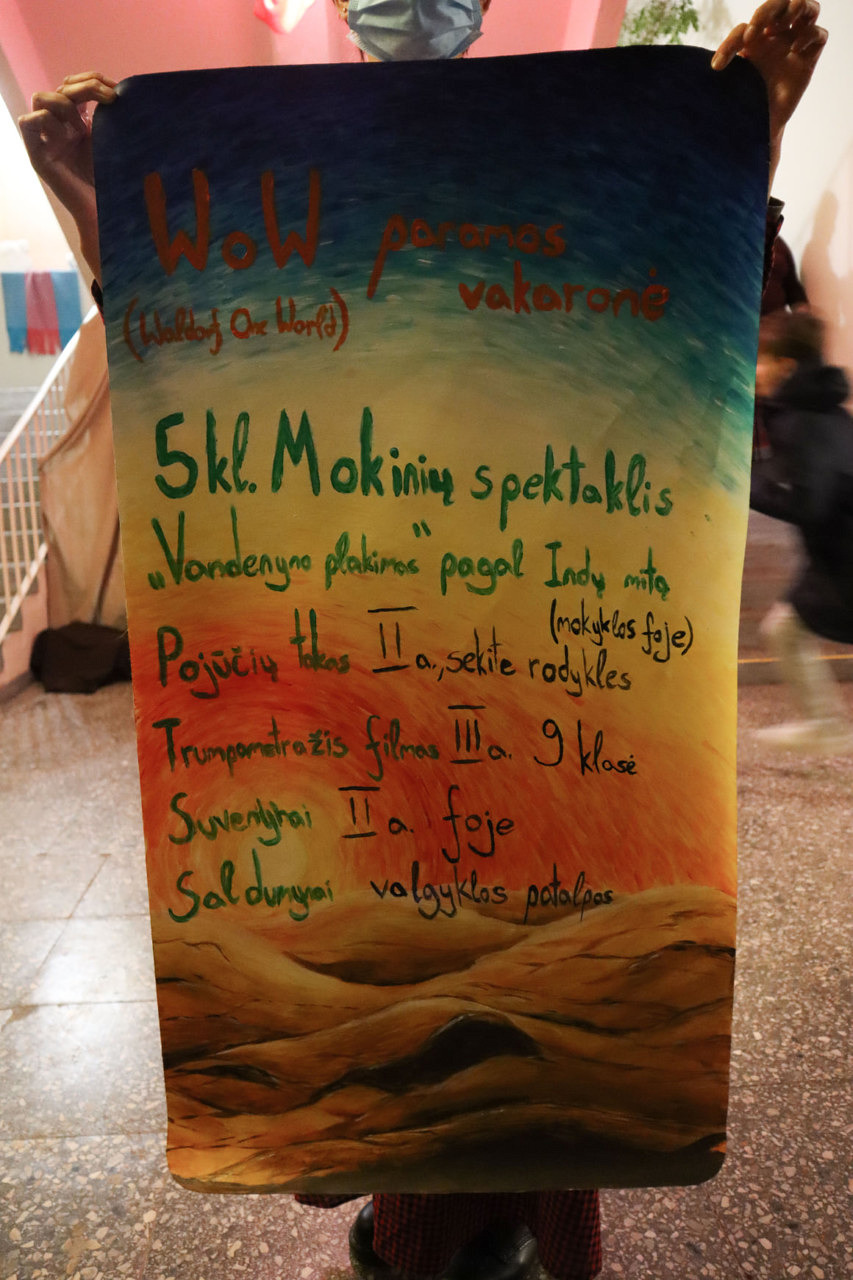 WoW paramos
vakaronė
(Waldorf One World)
5kl. Mokinių spektaklis
„Vandenyno plakimas“ pagal Indų mitą
(mokyklos foje)
Pojūčių takas II a., sekite rodykles
Trumpametražis filmas III a. 9 klasė
Suvenyrai II a. foje
Saldumynai valgyklos patalpos